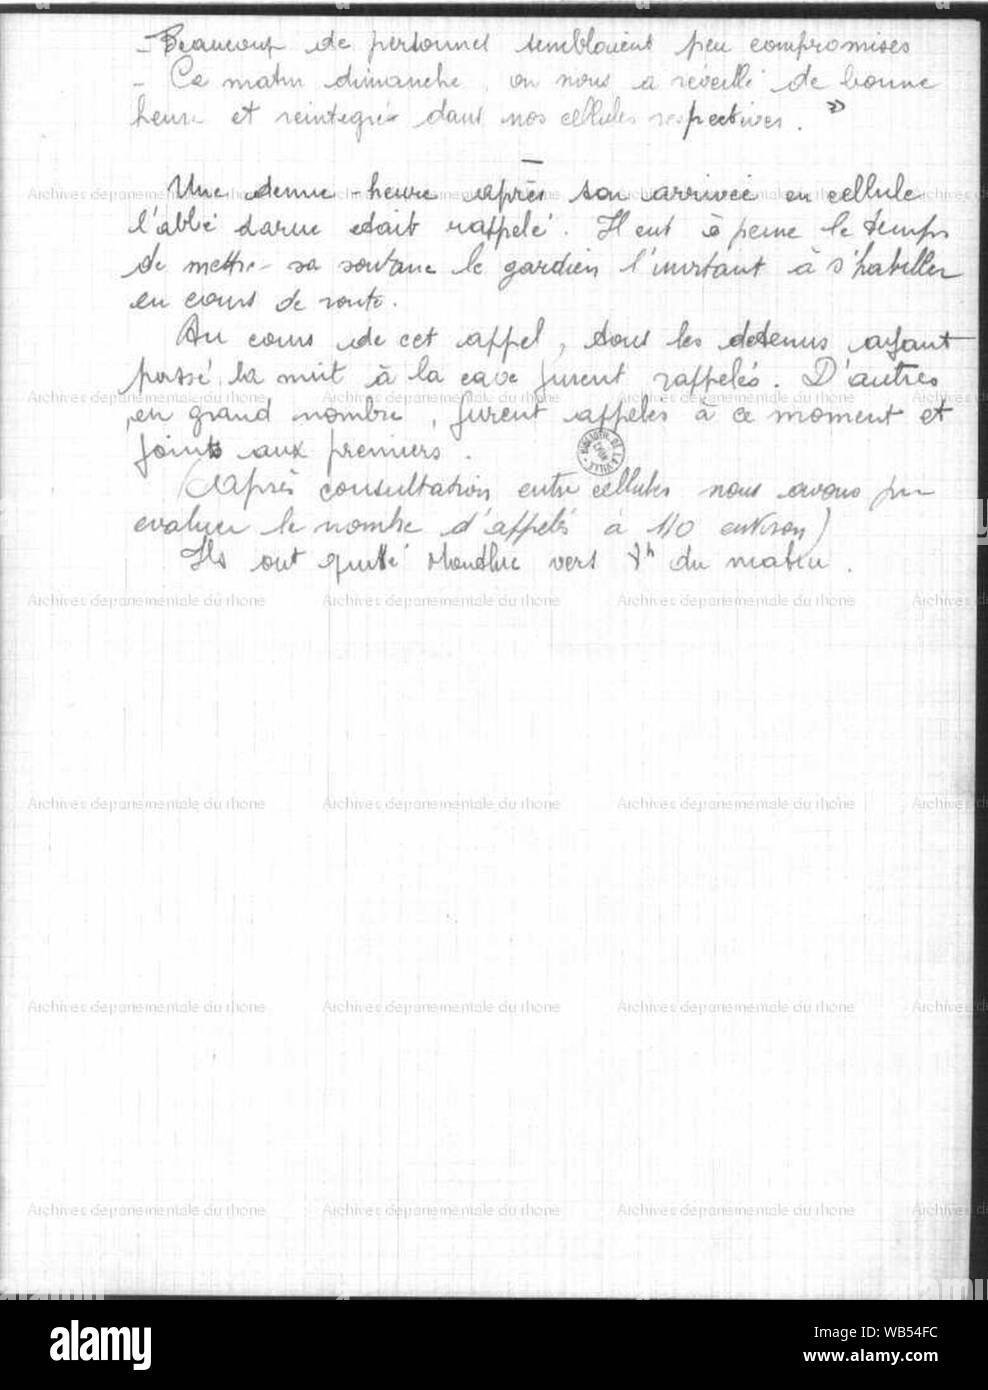 - Beaucoup de personnes semblaient peu compromises
- Ce matin dimanche, on nous a réveillé de bonne
heure et réintégrés dans nos cellules respectives. »
—
Une demie-heure après son arrivée en cellule
l'abbé Larue était rappelé. Il eut à peine le temps
de mettre sa soutane le gardien l'invitant à s'habiller
en cours de route.
Au cours de cet appel, tous les détenus ayant
passé la nuit à la cave furent rappelés. D'autres
en grand nombre, furent appelés à ce moment et
joints aux premiers.
(Après consultation entre cellules nous avons pu
évaluer le nombre d'appelés à 110 environ)
Ils ont quitté Montluc vers 8h du matin.
Archives départementale du rhone
Archives départementale du rhone
Archives départementale du rhone
Archives départementale du rhone
Archives départementale du rhone
Archives départementale du rhone
alamy
Image ID: WB54FC
www.alamy.com